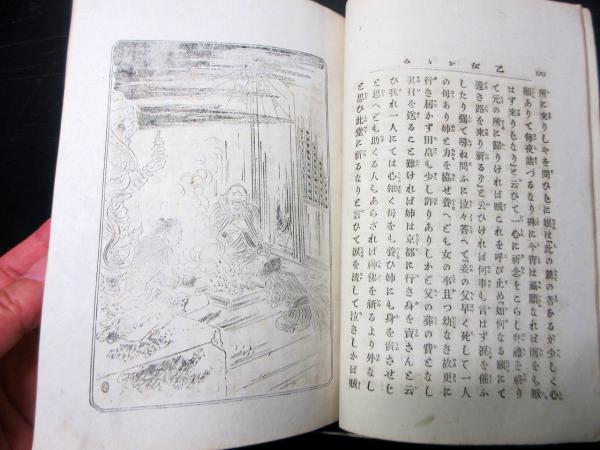 乙女かゝみ
所に來りし今を問ひしに娘は此の鎭の者なるが少しく心
願ありて每夜詣づるなり殊に今宵は滿願なれば雨をも厭
はず來りしなり」と云ひて一心に祈念をこらし拜禮を終り
て元の所に歸りければ賊これを呼び止め『如何なる願にて
遠き路を來り祈るぞ』と云ひければ何事も言はず淚を催ふ
したり强て尋ね問ふに泣々答へて『妾の父早く死して一人
の母あり姉と力を協せ養へども女の事且つ幼なき故更に
行き屆かず田畠も少し許りありしかど父の葬の費となし
其日を送ること難ければ姉は京都に行き身を賣さんと云
ひ我れ一人にては心細く母をも養ひ姉にも身を賣させじ
と思へども助くる人もあらざれば神佛を祈るより外なし
と思ひ此堂に祈るなりと言ひて淚を流して泣きしかば賊